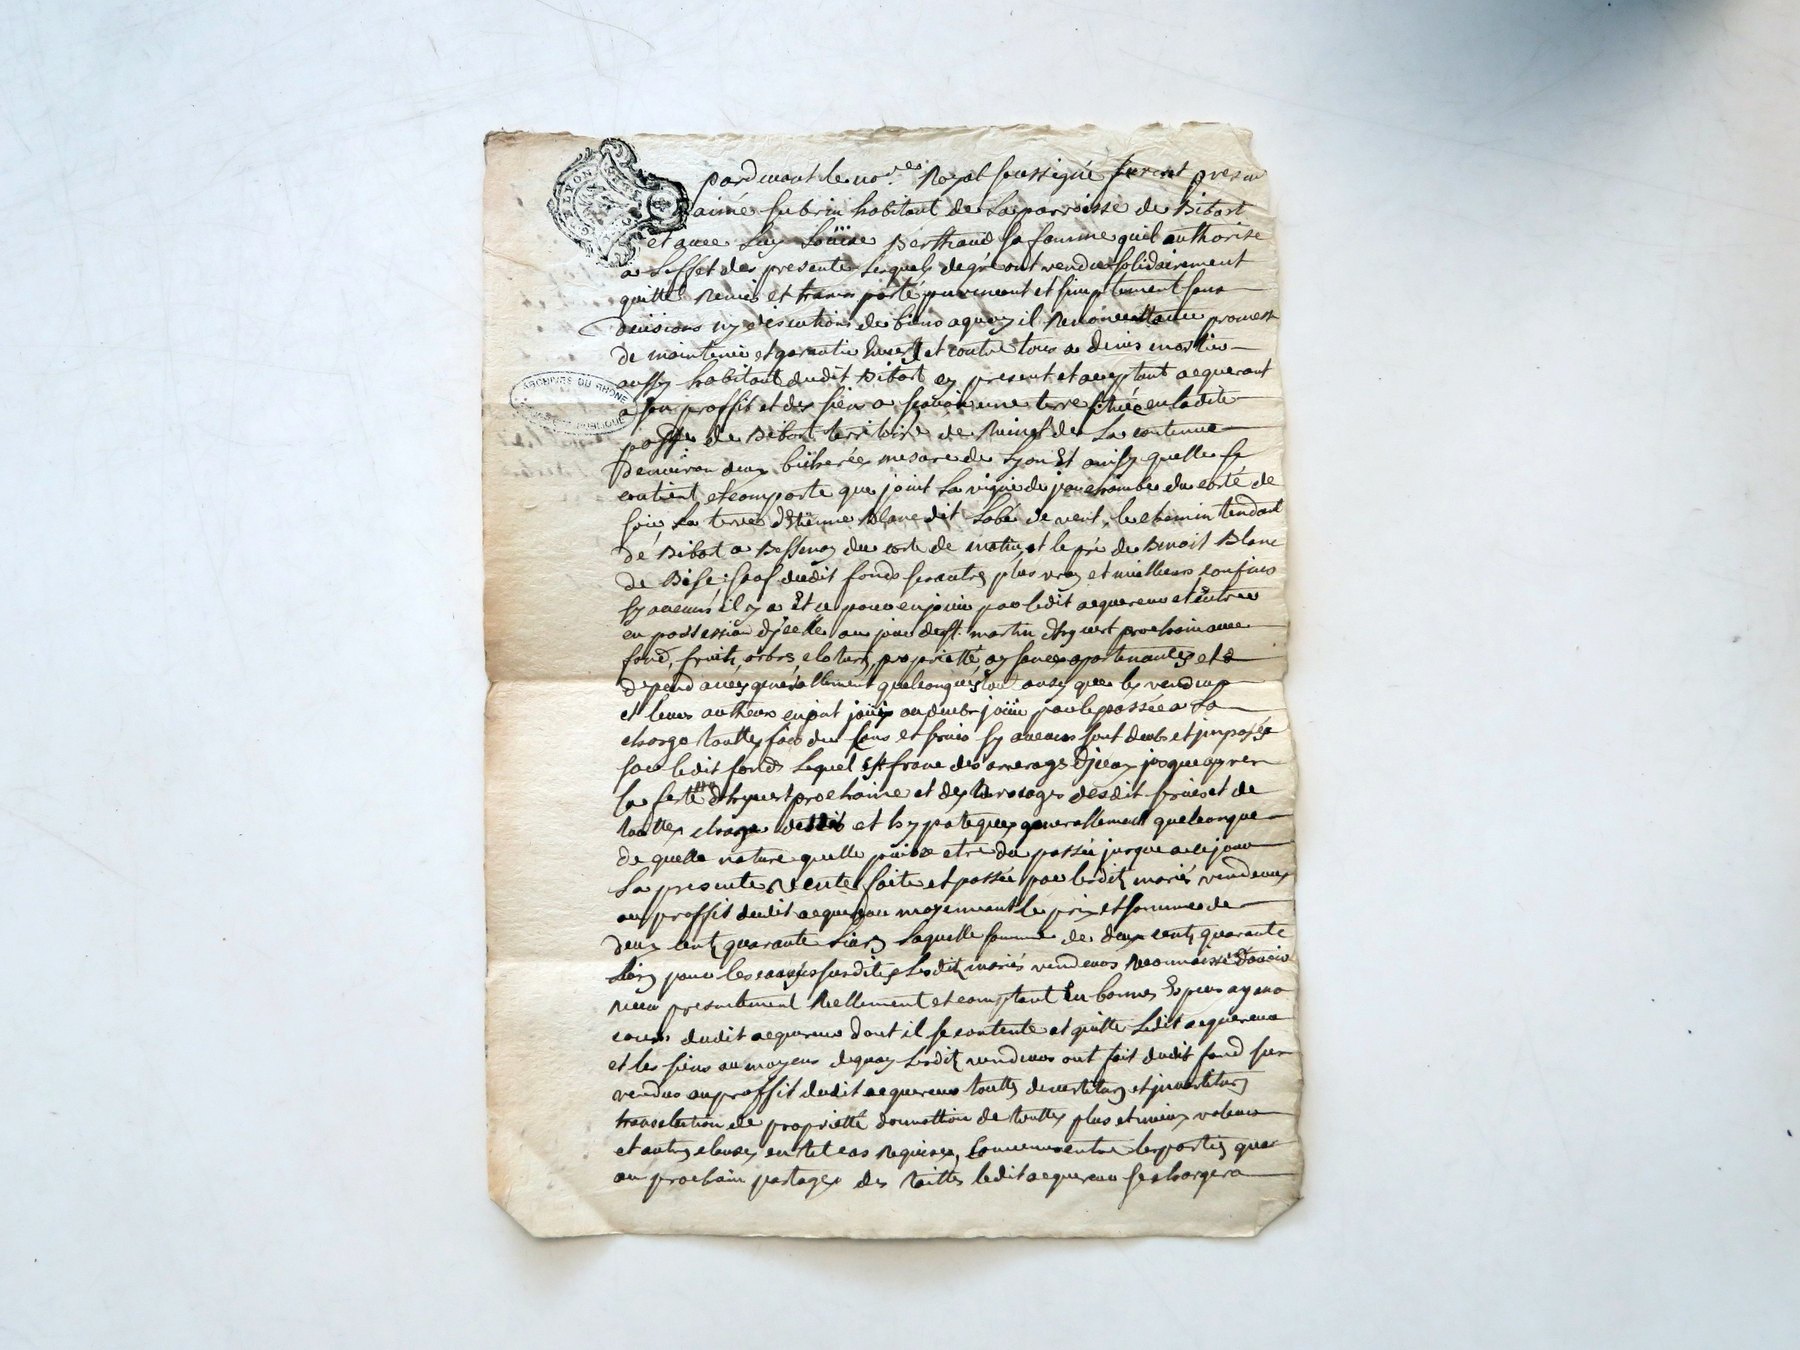 LYON
pardevant le no.re Royal soussigné furent presen
aimé subrin habitant de la parroisse de Bibost
et avec luy Loüise Berthaud sa famme quil authorise
a Leffet des presentes Lesquels de gré ont vendu solidairement
quitté Remis et transporté purement et simplement sans
divisions ny discutions de biens a quoy il Renoncent avec promesse
de maintenir et garantir Envers et contre tous a denis
aussy habitant dudit Bibost cy present et aceptant acquerant
ARCHIVES DU RHONE
a son proffit et des siens a scavoir une terre scituée en ladite
de Bibost territoire de La contenue
denviron deux bicherées mesure de Lyon Et ainsy quelle se
contient et comporte que joint La vigne de du costé de
soir La terre dEtienne Blanc dit Labé de vent, le chemin tendant
de Bibost a Bessenay du costé de matin et le pré de Benoit Blanc
de Bise; sauf dudit fonds ses autres plus vray et meilleurs confins
sy aucuns il y a Et ce pour en jouir par ledit acquereur et Entrer
en possession dycelle au jour de st. martin dhyvert prochain avec
fond, fruits, arbres, clotures, proprietté, aysances apartenances et
dependances generallement quelconques tout ainsy que les vendeurs
et leurs autheurs en ont joüis ou deub joüir par le passée a La
charge touttes fois des Cens et servis sy aucuns sont deubs et jmposés
sur ledit fonds Lequel Est franc des arrerages dyceux jusque apres
la feste dhyvert prochaine et des desdit servis et de
touttes charges dettes et hypoteques generallement quelconque
de quelle nature quelle puisse etre du passée jusque a ce jour
La presente Vente faite et passée par lesdits mariés vendeurs
au proffit dudit acquereur moyennant le prix et somme de
deux cents quarante Livres Laquelle somme de deux cents quarante
Livres pour les causes susdites Lesdits mariés vendeurs Reconnoissent davoir
Receu presentement Réellement et comptant En bonnes Especes ayant
cours dudit acquereur dont il se contente et quitte Ledit acquereur
et les siens au moyens dequoy Lesdits vendeurs ont fait dudit fond sus
vendus au proffit dudit acquereur touttes devestitures et jnvestitures
translation de proprietté donnation de touttes plus et mieux valeurs
et autres clauses en tel cas Requises, Convenu entre les parties que
au prochain partages des tailles ledit acquereur se chargera